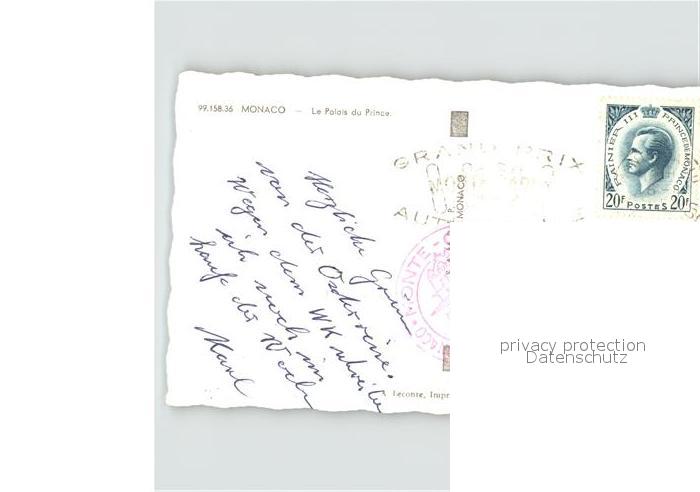 99.158.36 MONACO — Le Palais du Prince.
GRAND PRIX
AUT
MONACO
RAINIER III PRINCE DE MONACO
20F POSTES 20F
MONTE-
Herzliche
von der Osterreise.
Wegen dem WK schreibe
ich noch im
Laufe der Woche
Karl
Leconte, Impr
privacy protection
Datenschutz